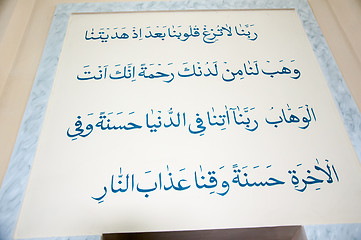 رَبَّنَا لَا تُزِغْ قُلُوبَنَا بَعْدَ اِذْ هَدَيْتَنَا
وَهَبْ لَنَا مِنْ لَدُنْكَ رَحْمَةً اِنَّكَ اَنْتَ
الْوَهَّابُ رَبَّنَا اٰتِنَا فِى الدُّنْيَا حَسَنَةً وَفِى
الْاٰخِرَةِ حَسَنَةً وَقِنَا عَذَابَ النَّارِ